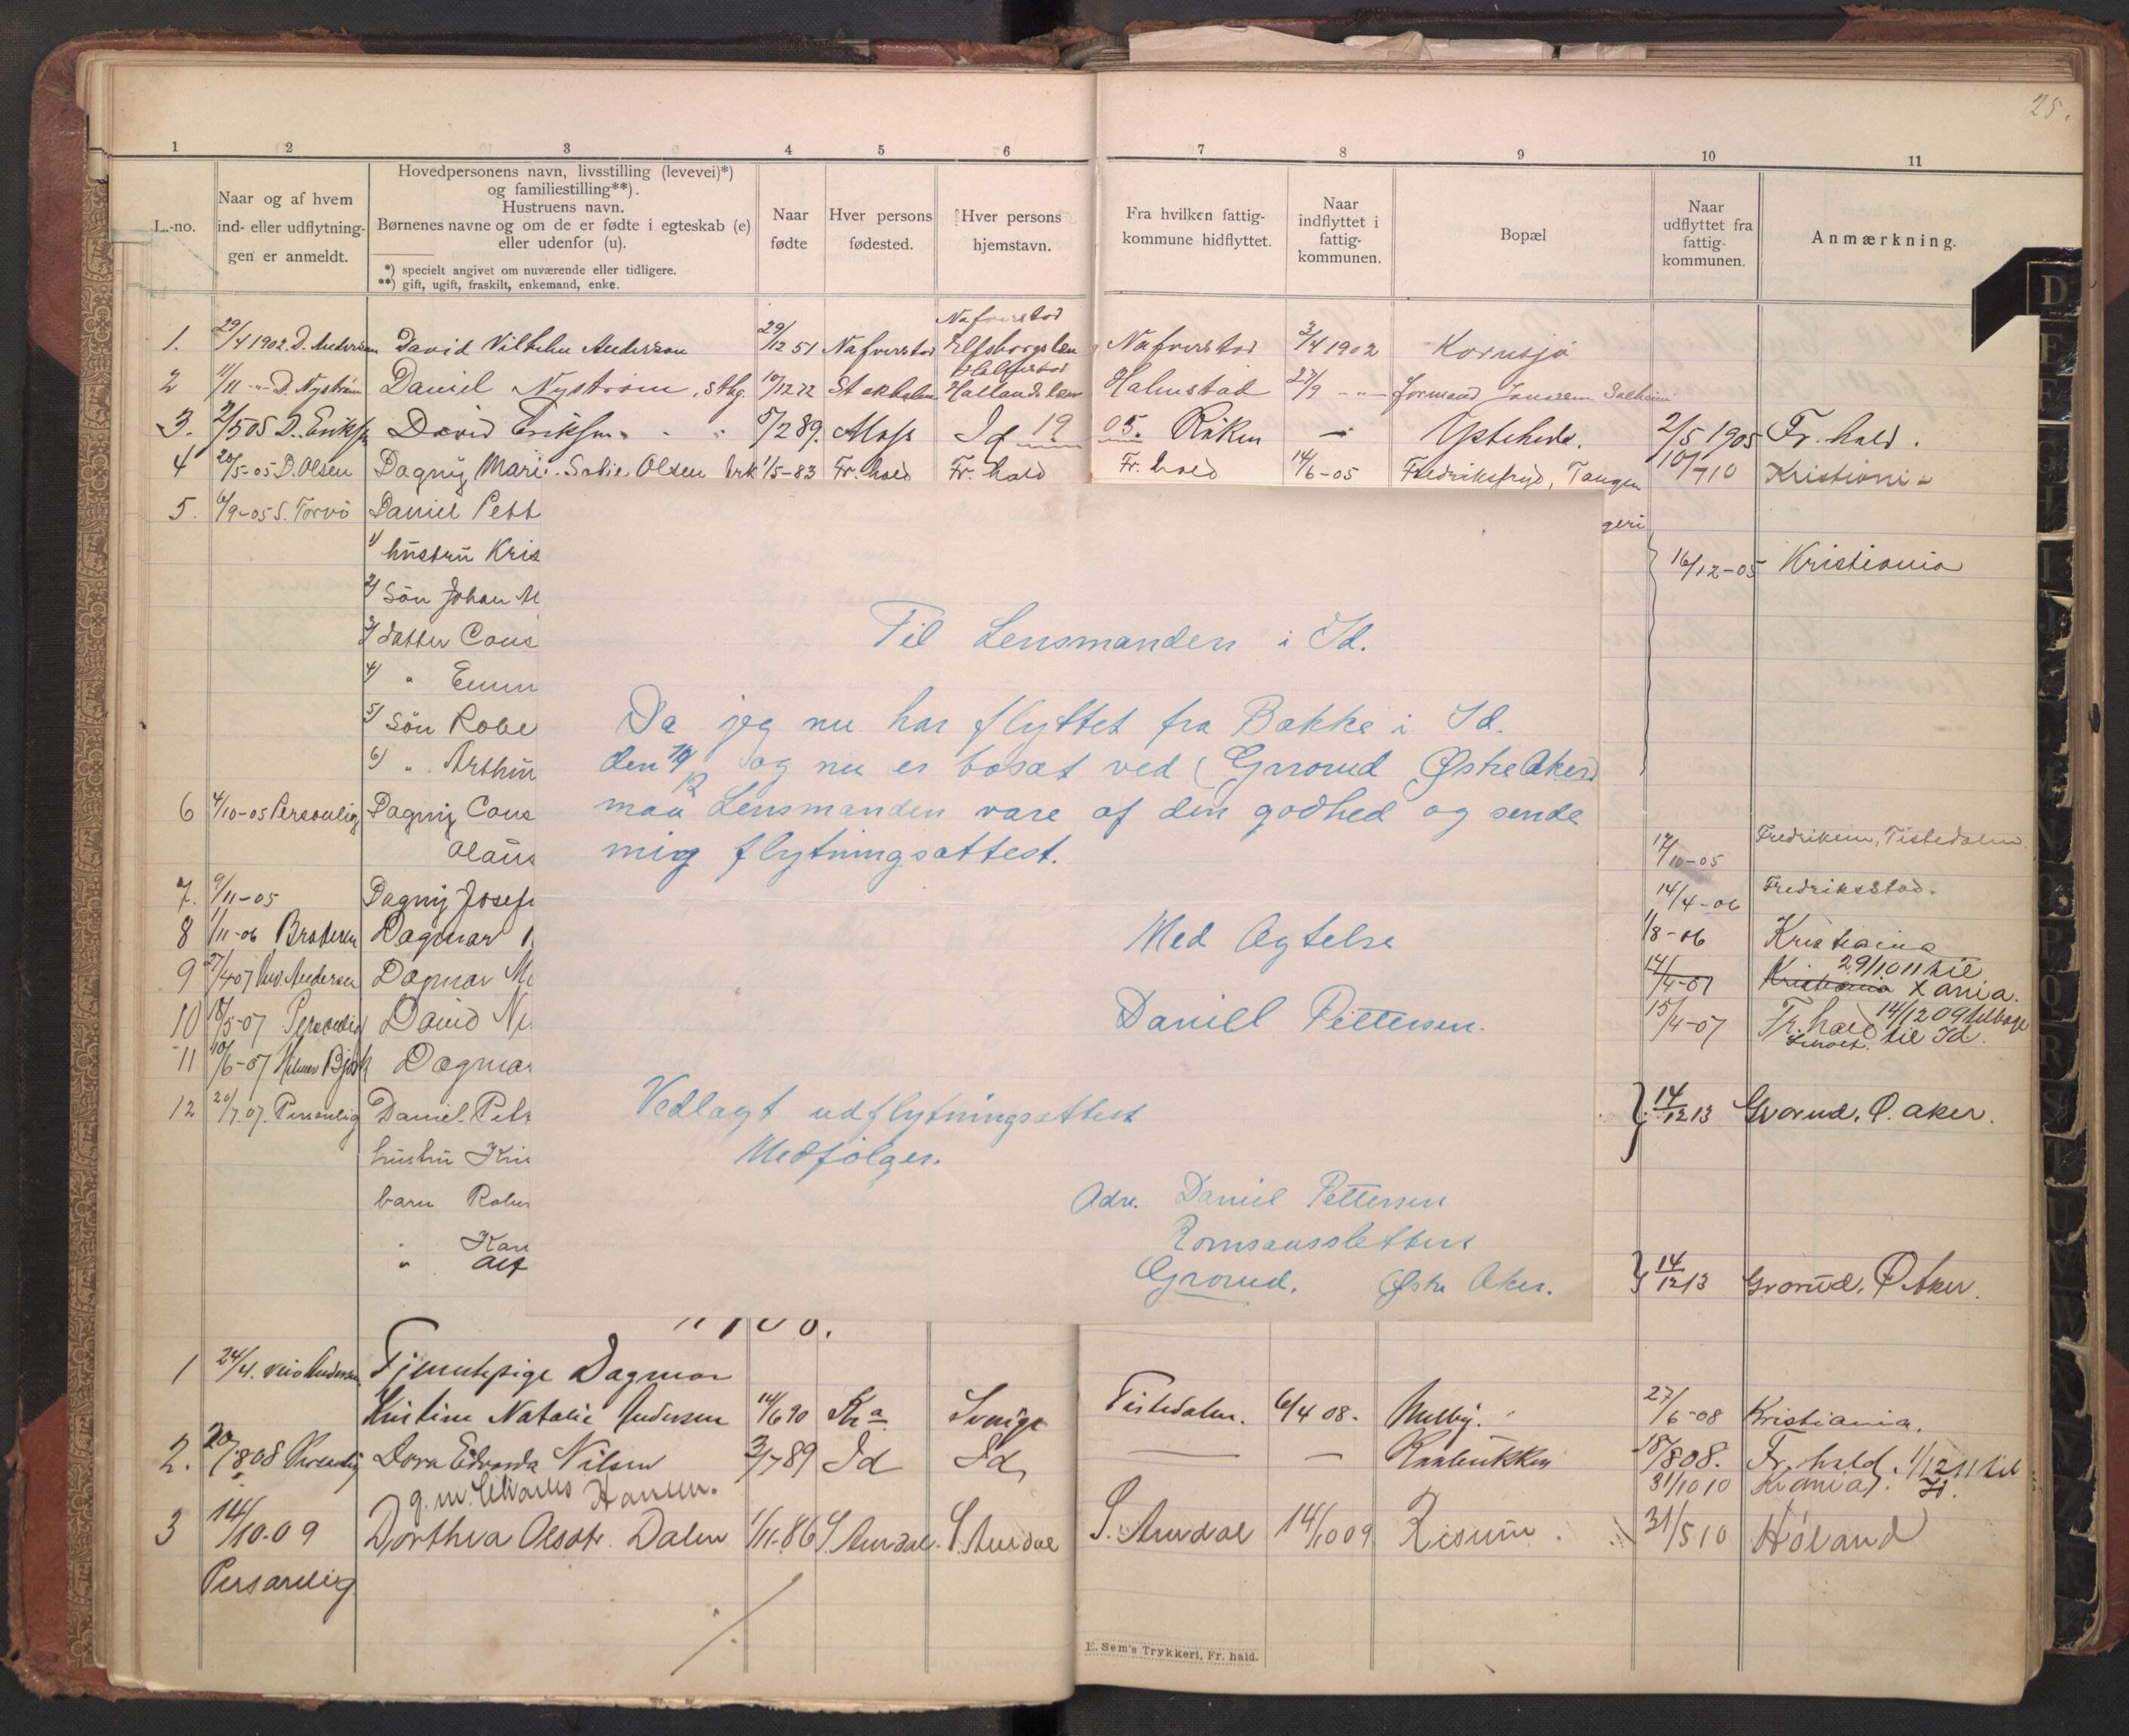 25.
1 2 3 4 5 6 7 8 9 10 11
L.-no.
Naar og af hvem
ind- eller udflytnin-
gen er anmeldt.
Hovedpersonens navn, livsstilling (levevei)*)
og familiestilling**).
Hustruens navn.
Børnenes navne og om de er fødte i egteskab (e)
eller udenfor (u).
*) specielt angivet om nuværende eller tidligere.
**) gift, ugift, fraskilt, enkemand, enke.
Naar
fødte
Hver persons
fødested.
Hver persons
hjemstavn.
Fra hvilken fattig-
kommune hidflyttet.
Naar
indflyttet i
fattig-
kommunen.
Bopæl
Naar
udflyttet fra
fattig-
kommunen.
Anmærkning.
Nafverstad
1. 29/4 1902. D. Anderson David Vilhelm Anderson 29/12 51 Nafverstad Elfsborgslæn Nafverstad 3/4 1902 Kornsjø
Halmstad
2 11/11 -"- D. Nyström Daniel Nyström, sthg. 10/12 72 Stokholm Hallandslæn Halmstad 27/9 -"- formand Solheim
3. 2/5 05 D. Eriksen David Eriksen 5/2 89. Moss Id 1905. Röken - 2/5 1905 Fr.hald.
4 20/5-05 D. Olsen Dagny Marie Sofie Olsen 1/5-83 Fr.hald Fr.hald Fr.hald 14/6-05 Fredriksfryd, Tangen 10/7 10 Kristiania
5. 6/9-05 S. Torvö Daniel Pett
geri
1) hustru Kris 16/12-05 Kristiania
2) Sön Johan M
3) datter Cons
4) " Emm
5) Sön Robe
6) " Arthur
6 4/10-05 Personlig Dagny Cons
Olaus 17/10-05 Fredriksen, Tistedalen.
7. 9/11-05 Dagny Josefi 14/4-06 Fredrikstad.
8 1/11-06 Dagmar 1/8-06 Kristiania
9 27/4 07 Andersen Dagmar M 14/4-07 Kristiania 29/10 11 til Xania.
10 18/5-07 Personlig David Ni 15/4-07 Fr.hald 14/12 09 tilbage til Id.
11 10/6-07 Hilmar Björk Dagmar
12 20/7.07. Personlig Daniel Pett 14/12 13 Grorud, Ø. Aker.
hustru Kri
barn Rober
" Kar
" Alf 14/12 13 Grorud, Ø Aker.
Til Lensmanden i Id.
Da jeg nu har flyttet fra Bakke i Id.
den 14/12 og nu er bosat ved (Grorud Østre Aker)
maa Lensmanden vare af den godhed og sende
mig flytningsattest.
Med Agtelse
Daniel Pettersen.
Vedlagt udflytningsattest
Medfölger.
Adr. Daniel Pettersen
Romsaassletten
Grorud. Østre Aker.
1908.
1 24/4. Andersen Tjenestepige Dagmar
Kristine Natalie Andersen 14/6 90 Kra Sverige Tistedalen. 6/4 08. Melby. 27/6-08 Kristiania.
2. 20/8 08 Personlig Dora Edvarda Nilsen 3/7 89 Id Id - - 18/8 08. Fr.hald. 1/12 11 til Id.
g.m. Hansen. 31/10 10 Kr.ania
3 14/10-09 Dorthea Olsdtr. Dalen 1/11-86 S. Aurdal. S. Aurdal S. Aurdal 14/10 09 Risum. 31/5 10 Höland
Personlig
E. Sem's Trykkeri, Fr. hald.
D
E
F
G